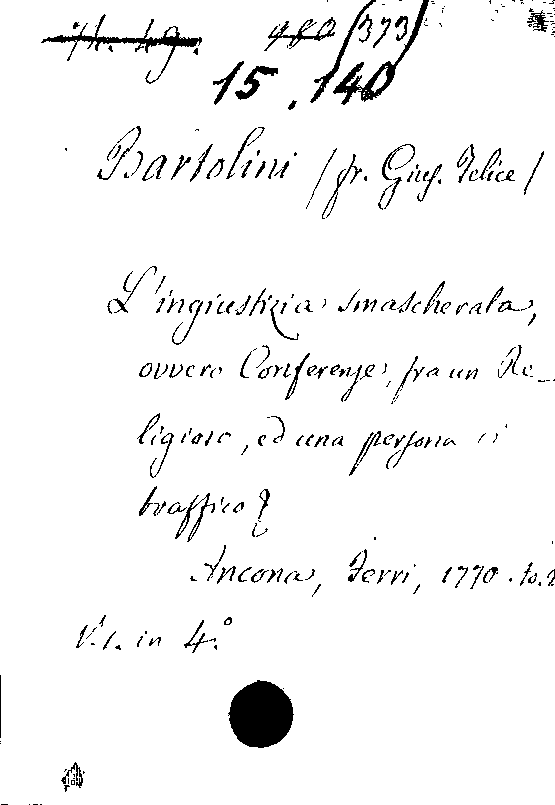 71. 49. 980 (373)
15.140
Bartolini / fr. Gius. Felice /
L'ingiustizia smascherata,
ovvero Conferenze, fra un Re_
ligioso, ed una persona di
traffico
Ancona, Ferri, 1770. to. 2
V. 1. in 4.°